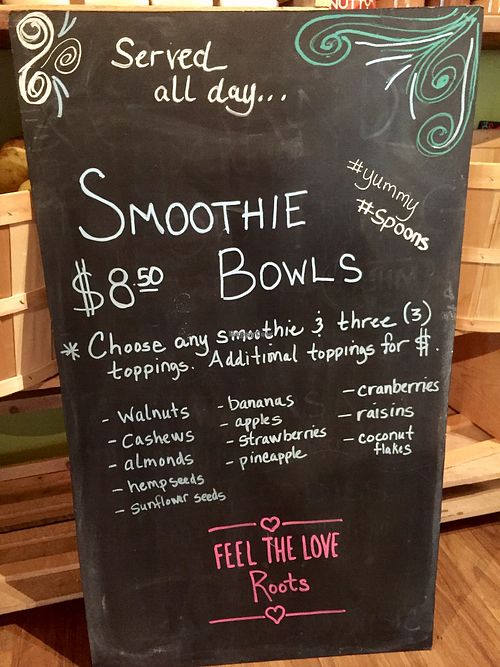 NUTTY
Served
all day...
#yummy
#Spoons
SMOOTHIE
BOWLS
$8.50
* Choose any smoothie & three (3)
toppings. Additional toppings for $.
- Walnuts
- Cashews
- almonds
- hemp seeds
- sunflower seeds
- bananas
- apples
- strawberries
- pineapple
- cranberries
- raisins
- coconut
flakes
FEEL THE LOVE
Roots